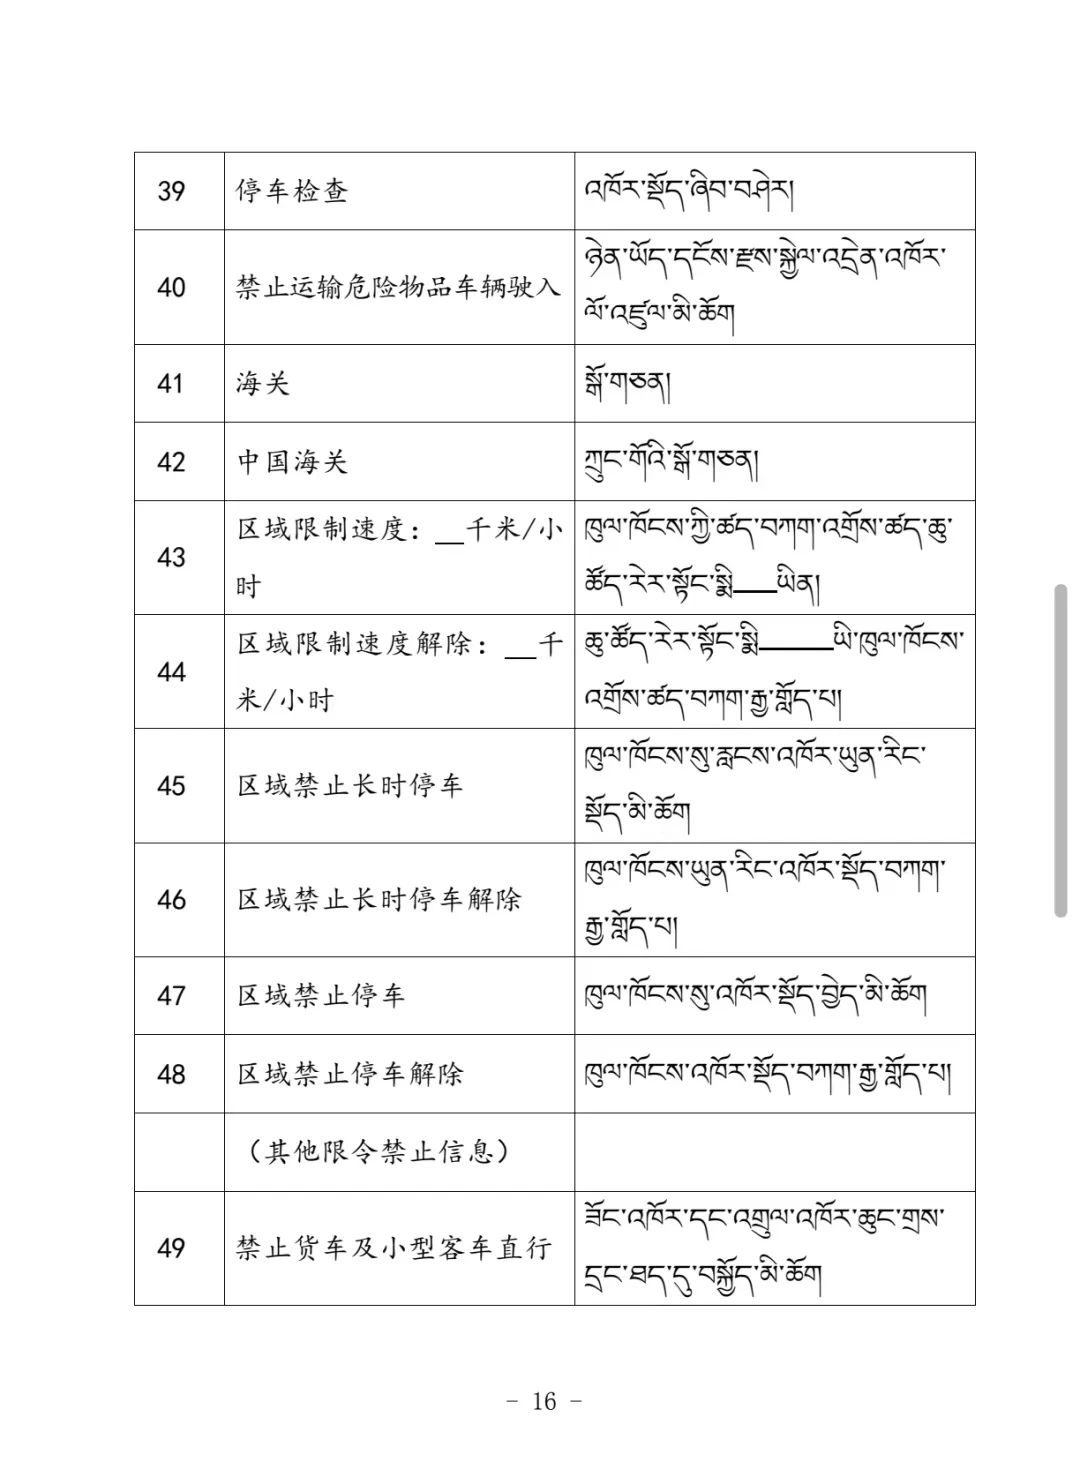 39 停车检查 འཁོར་སྡོད་ཞིབ་བཤེར།
40 禁止运输危险物品车辆驶入 ཉེན་ཡོད་དངོས་རྫས་སྐྱེལ་འདྲེན་འཁོར་
ལོ་འཛུལ་མི་ཆོག
41 海关 སྒོ་གཅན།
42 中国海关 ཀྲུང་གོའི་སྒོ་གཅན།
43 区域限制速度：__千米/小 ཁུལ་ཁོངས་ཀྱི་ཚད་བཀག་འགྲོས་ཚད་ཆུ་
时 ཚོད་རེར་སྟོང་སྨི____ཡིན།
44 区域限制速度解除：__千 ཆུ་ཚོད་རེར་སྟོང་སྨི______ཡི་ཁུལ་ཁོངས་
米/小时 འགྲོས་ཚད་བཀག་རྒྱ་གློད་པ།
45 区域禁止长时停车 ཁུལ་ཁོངས་སུ་རླངས་འཁོར་ཡུན་རིང་
སྡོད་མི་ཆོག
46 区域禁止长时停车解除 ཁུལ་ཁོངས་ཡུན་རིང་འཁོར་སྡོད་བཀག་
རྒྱ་གློད་པ།
47 区域禁止停车 ཁུལ་ཁོངས་སུ་འཁོར་སྡོད་བྱེད་མི་ཆོག
48 区域禁止停车解除 ཁུལ་ཁོངས་འཁོར་སྡོད་བཀག་རྒྱ་གློད་པ།
（其他限令禁止信息）
49 禁止货车及小型客车直行 ཟོང་འཁོར་དང་འགྲུལ་འཁོར་ཆུང་གྲས་
དྲང་ཐད་དུ་བསྐྱོད་མི་ཆོག
- 16 -